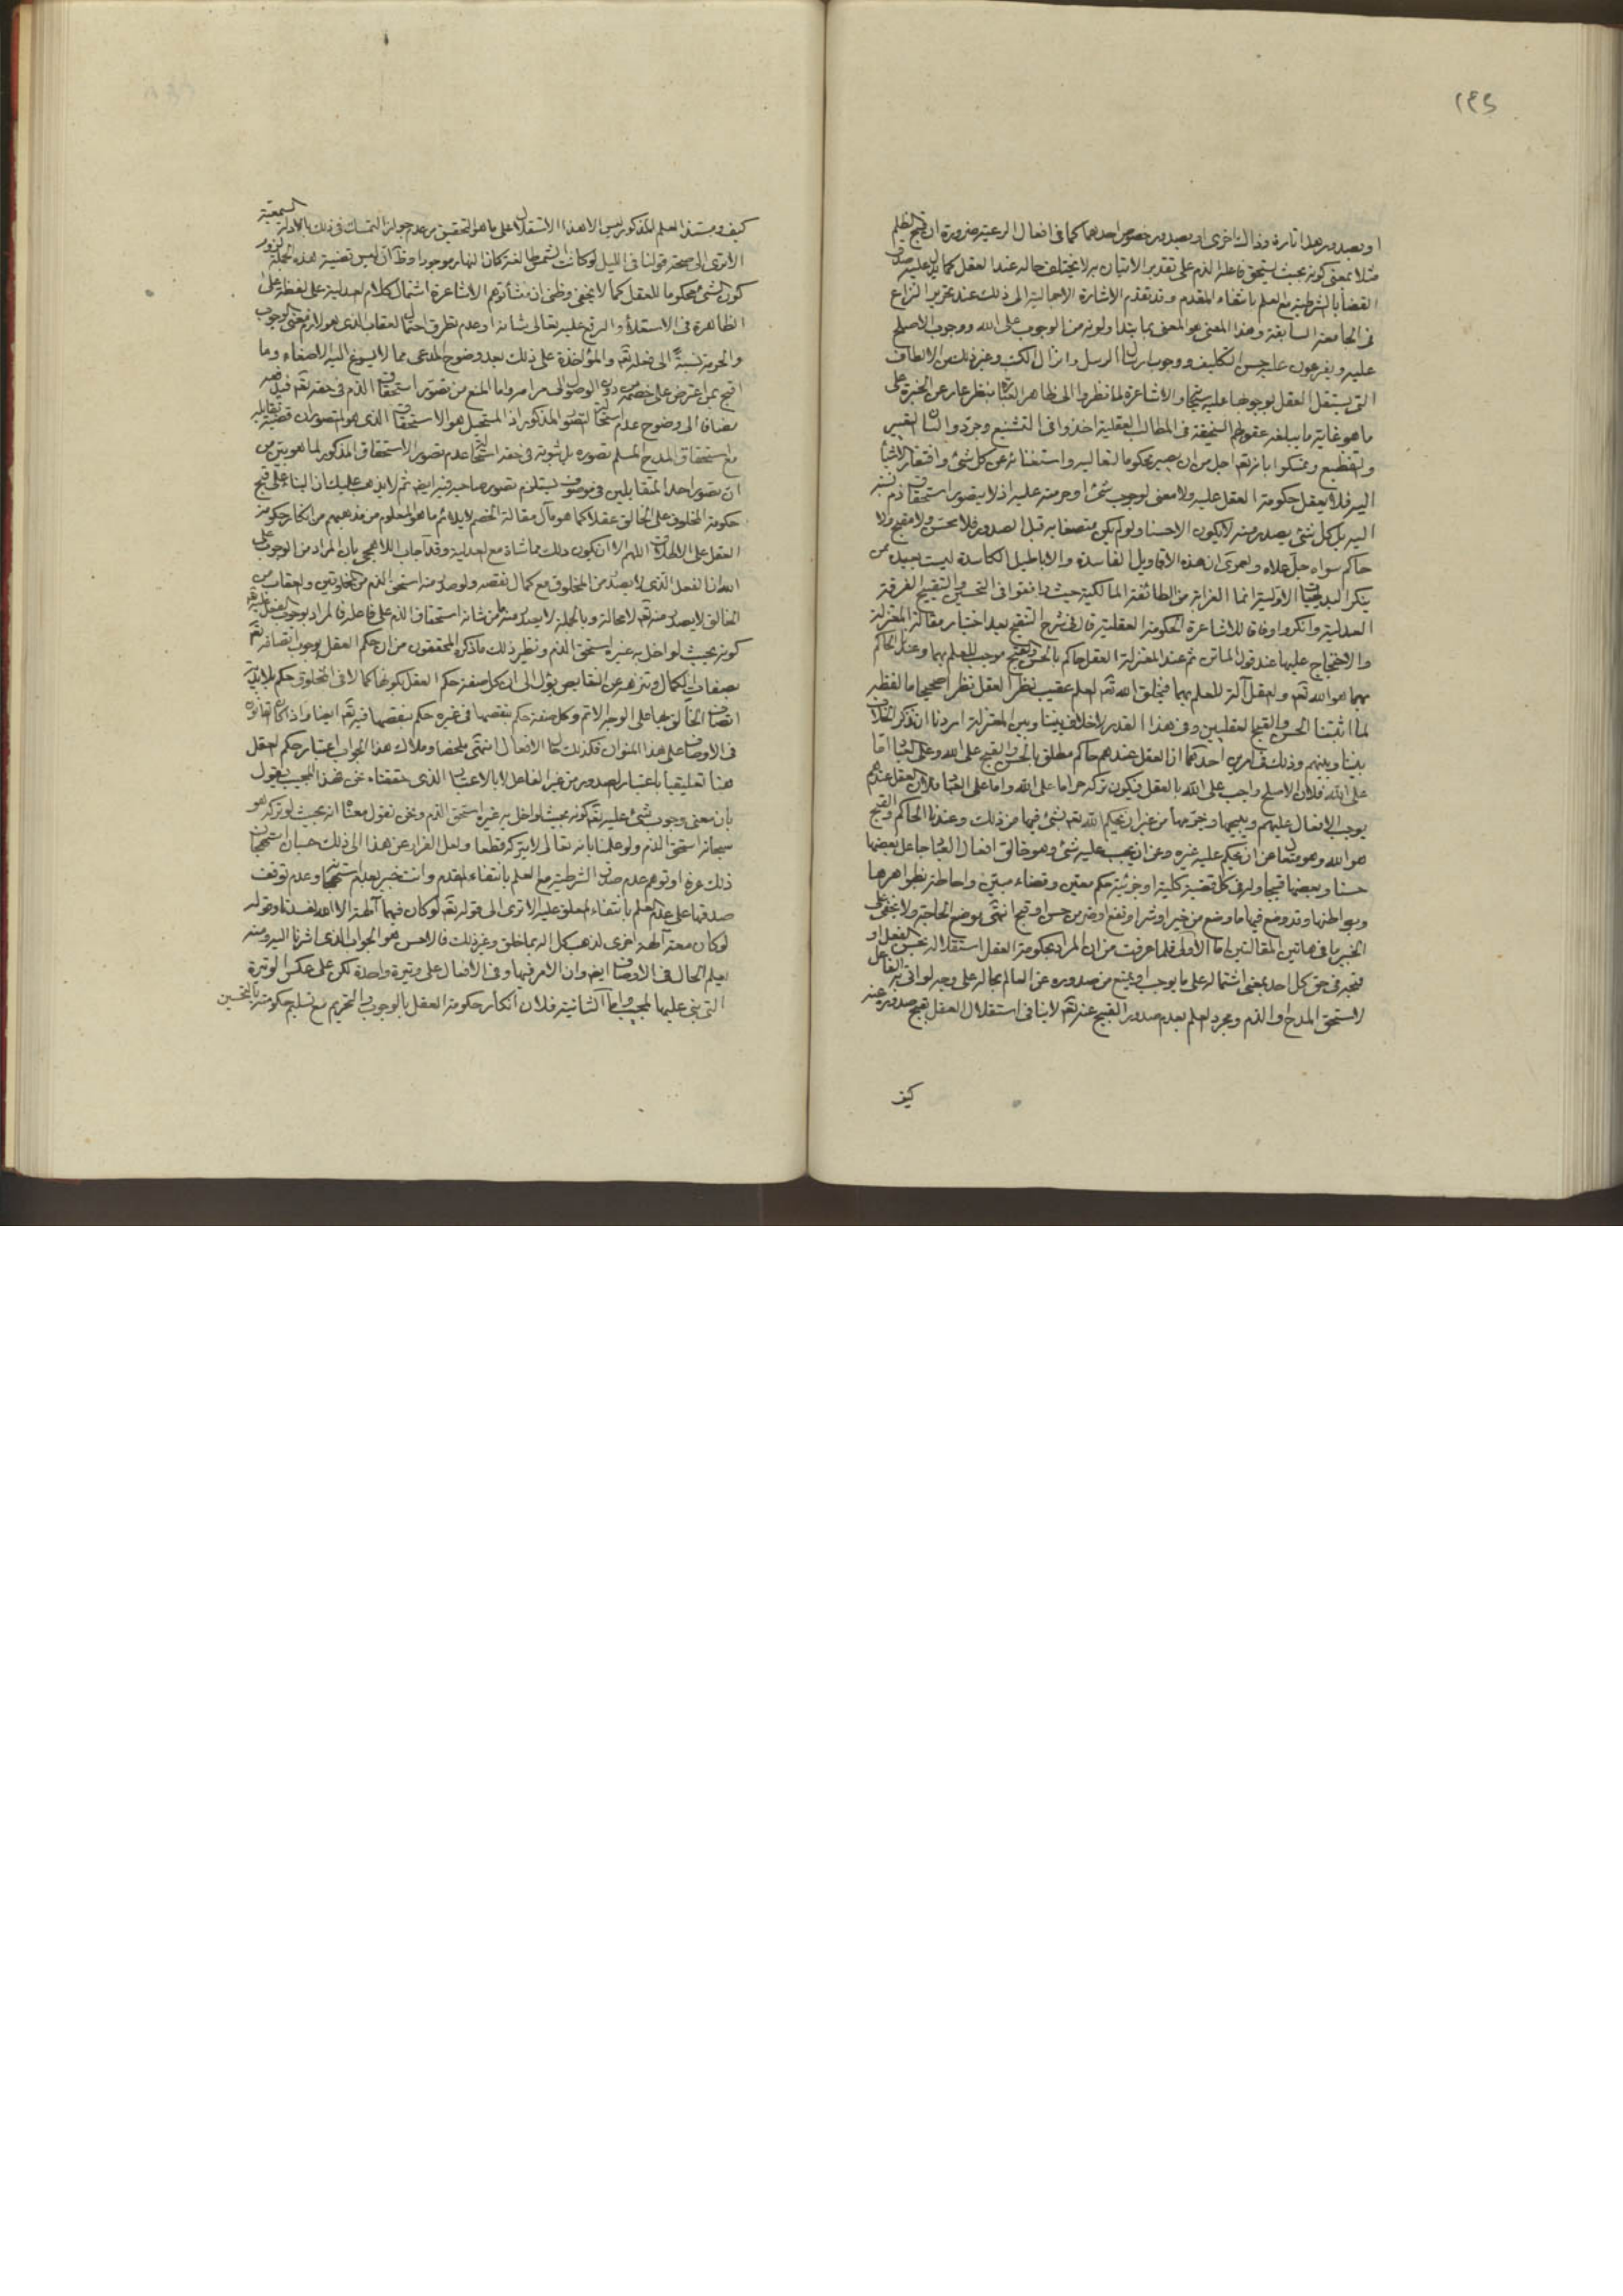 ١٩٥
او بصدور هذا تارة وذاك اخرى او بصدور خصوص احدهما كما فى افعال الرعية ضرورة ان قبح الظلم
مثلا بمعنى كونه بحيث يستحق فاعله الذم على تقدير الاتيان به لا يختلف حاله عند العقل كما يدل عليه صدق
القضايا الشرطية مع العلم بانتفاء المقدم وقد تقدم الاشارة الاجمالية الى ذلك عند تحرير النزاع
فى الجامعة السابقة وهذا المعنى هو المعنى بما يتداولونه من الوجوب على الله ووجوب الاصلح
عليه ويفرعون عليه حسن التكليف ووجوب ارسال الرسل وانزال الكتب وغير ذلك من الالطاف
التى يستقل العقل بوجوبها عليه سبحانه والاشاعرة لما نظروا الى ظاهر العبارة بنظر عار عن الخبرة على
ما هو غاية ما يبلغه عقولهم السخيفة فى المطالب العقلية اخذوا فى التشنيع وجردوا لسان التعيير
والتفظيع وتمسكوا بانه تعم اجل من ان يصير محكوما لتعاليه واستغنائه عن كل شئ وافتقار الاشياء
اليه فلا يعقل حكومة العقل عليه ولا معنى لوجوب شئ او حرمته عليه اذ لا يتصور استحقاق ذم بنسبة
اليه بل كل شئ يصدر منه لا يكون الا حسنا ولو لم يكن متصفا به قبل الصدور فلا محسن ولا مقبح ولا
حاكم سواه جل علاه ولعمرى ان هذه الاقاويل الفاسدة والاباطيل الكاسدة ليست ببعيدة ممن
ينكر البديهيات الاولية انما الغرابة من الطائفة المالكية حيث وافقوا فى التحسين والتقبيح الفرقة
العدلية وانكروا وفاقا للاشاعرة الحكومة العقلية قال فى شرح التنقيح بعد اختيار مقالة المعتزلة
والاحتجاج عليها عند قول الماتن ثم عند المعتزلة العقل حاكم بالحسن والقبح موجب للعلم بهما وعندنا الحاكم
بهما هو الله تعم والعقل آلة للعلم بهما فيخلق الله تعم العلم عقيب نظر العقل نظرا صحيحا ما لفظه
لما اثبتنا الحسن والقبح العقليين وفى هذا القدر لا خلاف بيننا وبين المعتزلة اردنا ان نذكر الخلاف
بيننا وبينهم وذلك فى امرين احدهما ان العقل عندهم حاكم مطلق بالحسن والقبح على الله وعلى العباد اما
على الله فلان الاصلح واجب على الله بالعقل فيكون تركه حراما على الله واما على العباد فلان العقل عندهم
يوجب الافعال عليهم ويبيحها ويحرمها من غير ان يحكم الله تعم بشئ فيها من ذلك وعندنا الحاكم والقبح
هو الله وهو متعال عن ان يحكم عليه غيره وعن ان يجب عليه شئ وهو خالق افعال العباد جاعل بعضها
حسنا وبعضها قبيحا وله فى كل قضية كلية او جزئية حكم معين وقضاء مبين واحاطة بظواهرها
وبواطنها وقد وضع فيها ما وضع من خير او شر او نفع او ضر من حسن او قبح انتهى موضع الحاجة ولا يخفى على
الخبير ما فى هاتين المقالتين اما الاولى فلما عرفت من ان المراد بحكومة العقل استقلاله بحسن الفعل او
قبحه فى حق كل احد بمعنى اشتماله على ما يوجب او يمنع من صدوره عن العالم بحاله على وجه لو اتى به الفاعل
لاستحق المدح او الذم ومجرد العلم بعدم صدور القبيح عنه تعم لا ينافى استقلال العقل بقبح صدوره عنه
كيف
كيف ومستند العلم المذكور ليس الا هذا الاستقلال على ما هو التحقيق من عدم جواز التمسك فى ذلك بالادلة السمعية
الا ترى الى صحة قولنا فى الليل لو كانت الشمس طالعة كان النهار موجودا وظ ان ليس قضية هذه الجملة لزوم
كون الشئ محكوما للعقل كما لا يخفى وظنى ان منشأ توهم الاشاعرة اشتمال كلام العدلية على لفظة على
الظاهرة فى الاستعلاء والترفع عليه تعالى شانه او عدم تطرق احتمال العقاب الذى هو لازم معنى الوجوب
والحرمة نسبة الى فعله تعم والمؤاخذة على ذلك بعد وضوح المدعى مما لا يسوغ اليه الاصغاء وما
اقبح بمن اعترض على خصمه من دون الوصول الى مرامه واما المنع من تصور استحقاق الذم فى حقه تعم فيدفعه
مضافا الى وضوح عدم استحالة التصور المذكور اذ المستحيل هو الاستحقاق الذى هو المتصور ان قضية تقابله
مع استحقاق المدح المسلم تصوره بل ثبوته فى حقه استحالة عدم تصور الاستحقاق المذكور لما هو بين من
ان تصور احد المتقابلين فى موصوف يستلزم تصور صاحبه فيه ايضا ثم لا يذهب عليك ان البناء على قبح
حكومة المخلوق على الخالق عقلا كما هو مآل مقالة الخصم لا يلائم ما هو المعلوم من مذهبهم من انكار حكومة
العقل على الاطلاق اللهم الا ان يكون ذلك مماشاة مع العدلية وقد اجاب اللاهجى بان المراد من الوجوب على
الله ان الفعل الذى لا يصدر من المخلوق مع كمال نقصه ولو صدر منه استحق الذم من المخلوقين والعقاب من
الخالق لا يصدر منه تعم لا محالة وبالجملة لا يصدر منه ما من شانه استحقاق الذم على فاعله فالمراد بوجوب الفعل عليه تعم
كونه بحيث لو اخل به غيره استحق الذم ونظير ذلك ما ذكره المحققون من ان حكم العقل بوجوب اتصافه تعم
بصفات الكمال وتنزهه عن النقايص يؤل الى ان كل صفة حكم العقل بكونها كمالا فى المخلوق حكم بلابدية
اتصاف الخالق بها على الوجه الاتم وكل صفة حكم بنقصها فى غيره حكم بنقصها فيه تعم ايضا واذا كان الحال
فى الاوصاف على هذا المنوال فكذلك حال الافعال انتهى ملخصا وملاك هذا الجواب اعتبار حكم العقل
هنا تعليقيا باعتبار الصدور من غير الفاعل لا بالاعتبار الذى حققناه نحن فهذا المجيب يقول
بان معنى وجوب شئ عليه تعم كونه بحيث لو اخل به غيره استحق الذم ونحن نقول معناه انه بحيث لو تركه هو
سبحانه استحق الذم ولو علمنا بانه تعالى لا يتركه قطعا ولعل الفرار عن هذا الى ذلك حسبان استهجان
ذلك عرفا او توهم عدم صدق الشرطية مع العلم بانتفاء المقدم وانت خبير بعدم استهجانها وعدم توقف
صدقها على عدم العلم بانتفاء المعلق عليه الا ترى الى قوله تعم لو كان فيهما آلهة الا الله لفسدتا وقوله
لو كان معه آلهة اخرى لذهب كل اله بما خلق وغير ذلك فالاحسن هو الجواب الذى اشرنا اليه ومنه
يعلم الحال فى الاوصاف ايضا وان الامر فيها وفى الافعال على وتيرة واحدة لكن على عكس الوتيرة
التى بنى عليها المجيب واما الثانية فلان انكار حكومة العقل بالوجوب والتحريم مع تسليم حكومته بالتحسين